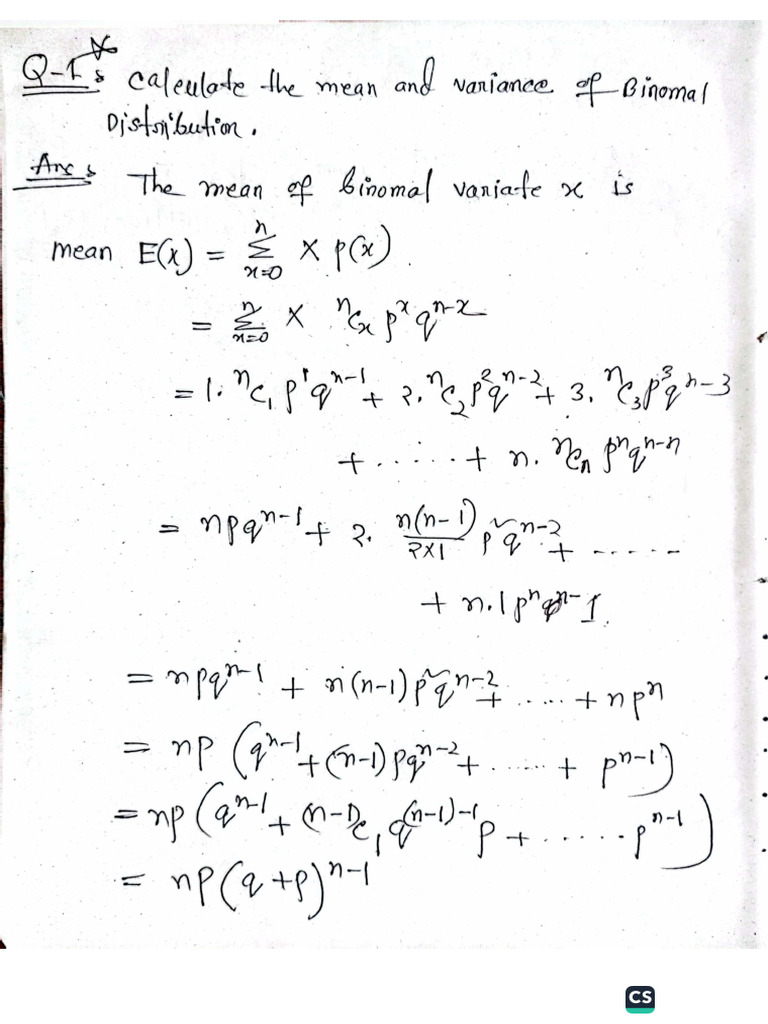 Q-1 : Calculate the mean and variance of Binomal
Distribution.
Ans : The mean of binomal variate x is
mean E(x) = ∑ₓ₌₀ⁿ x p(x)
= ∑ₓ₌₀ⁿ x ⁿCₓ pˣ qⁿ⁻ˣ
= 1. ⁿC₁ p¹qⁿ⁻¹ + 2. ⁿC₂ p²qⁿ⁻² + 3. ⁿC₃ p³qⁿ⁻³
+ ...... + n. ⁿCₙ pⁿqⁿ⁻ⁿ
= npqⁿ⁻¹ + 2. n(n-1)/2×1 p²qⁿ⁻² + ......
+ n.1 pⁿ
= npqⁿ⁻¹ + n(n-1)p²qⁿ⁻² + ..... + npⁿ
= np (qⁿ⁻¹ + (n-1)pqⁿ⁻² + ...... + pⁿ⁻¹)
= np (qⁿ⁻¹ + (n-1)C₁ q⁽ⁿ⁻¹⁾⁻¹ p + ...... pⁿ⁻¹)
= np(q+p)ⁿ⁻¹
CS